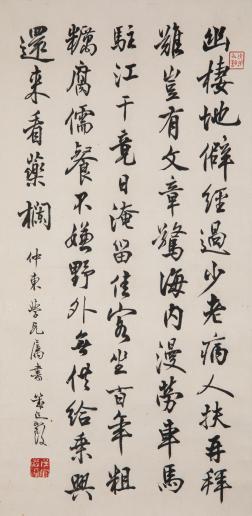 幽棲地僻經過少老病人扶再拜
難豈有文章驚海内漫勞車馬
駐江干竟日淹留佳客坐百年粗
糲腐儒餐不嫌野外無供給乘興
還來看藥欄
仲東學兄屬書